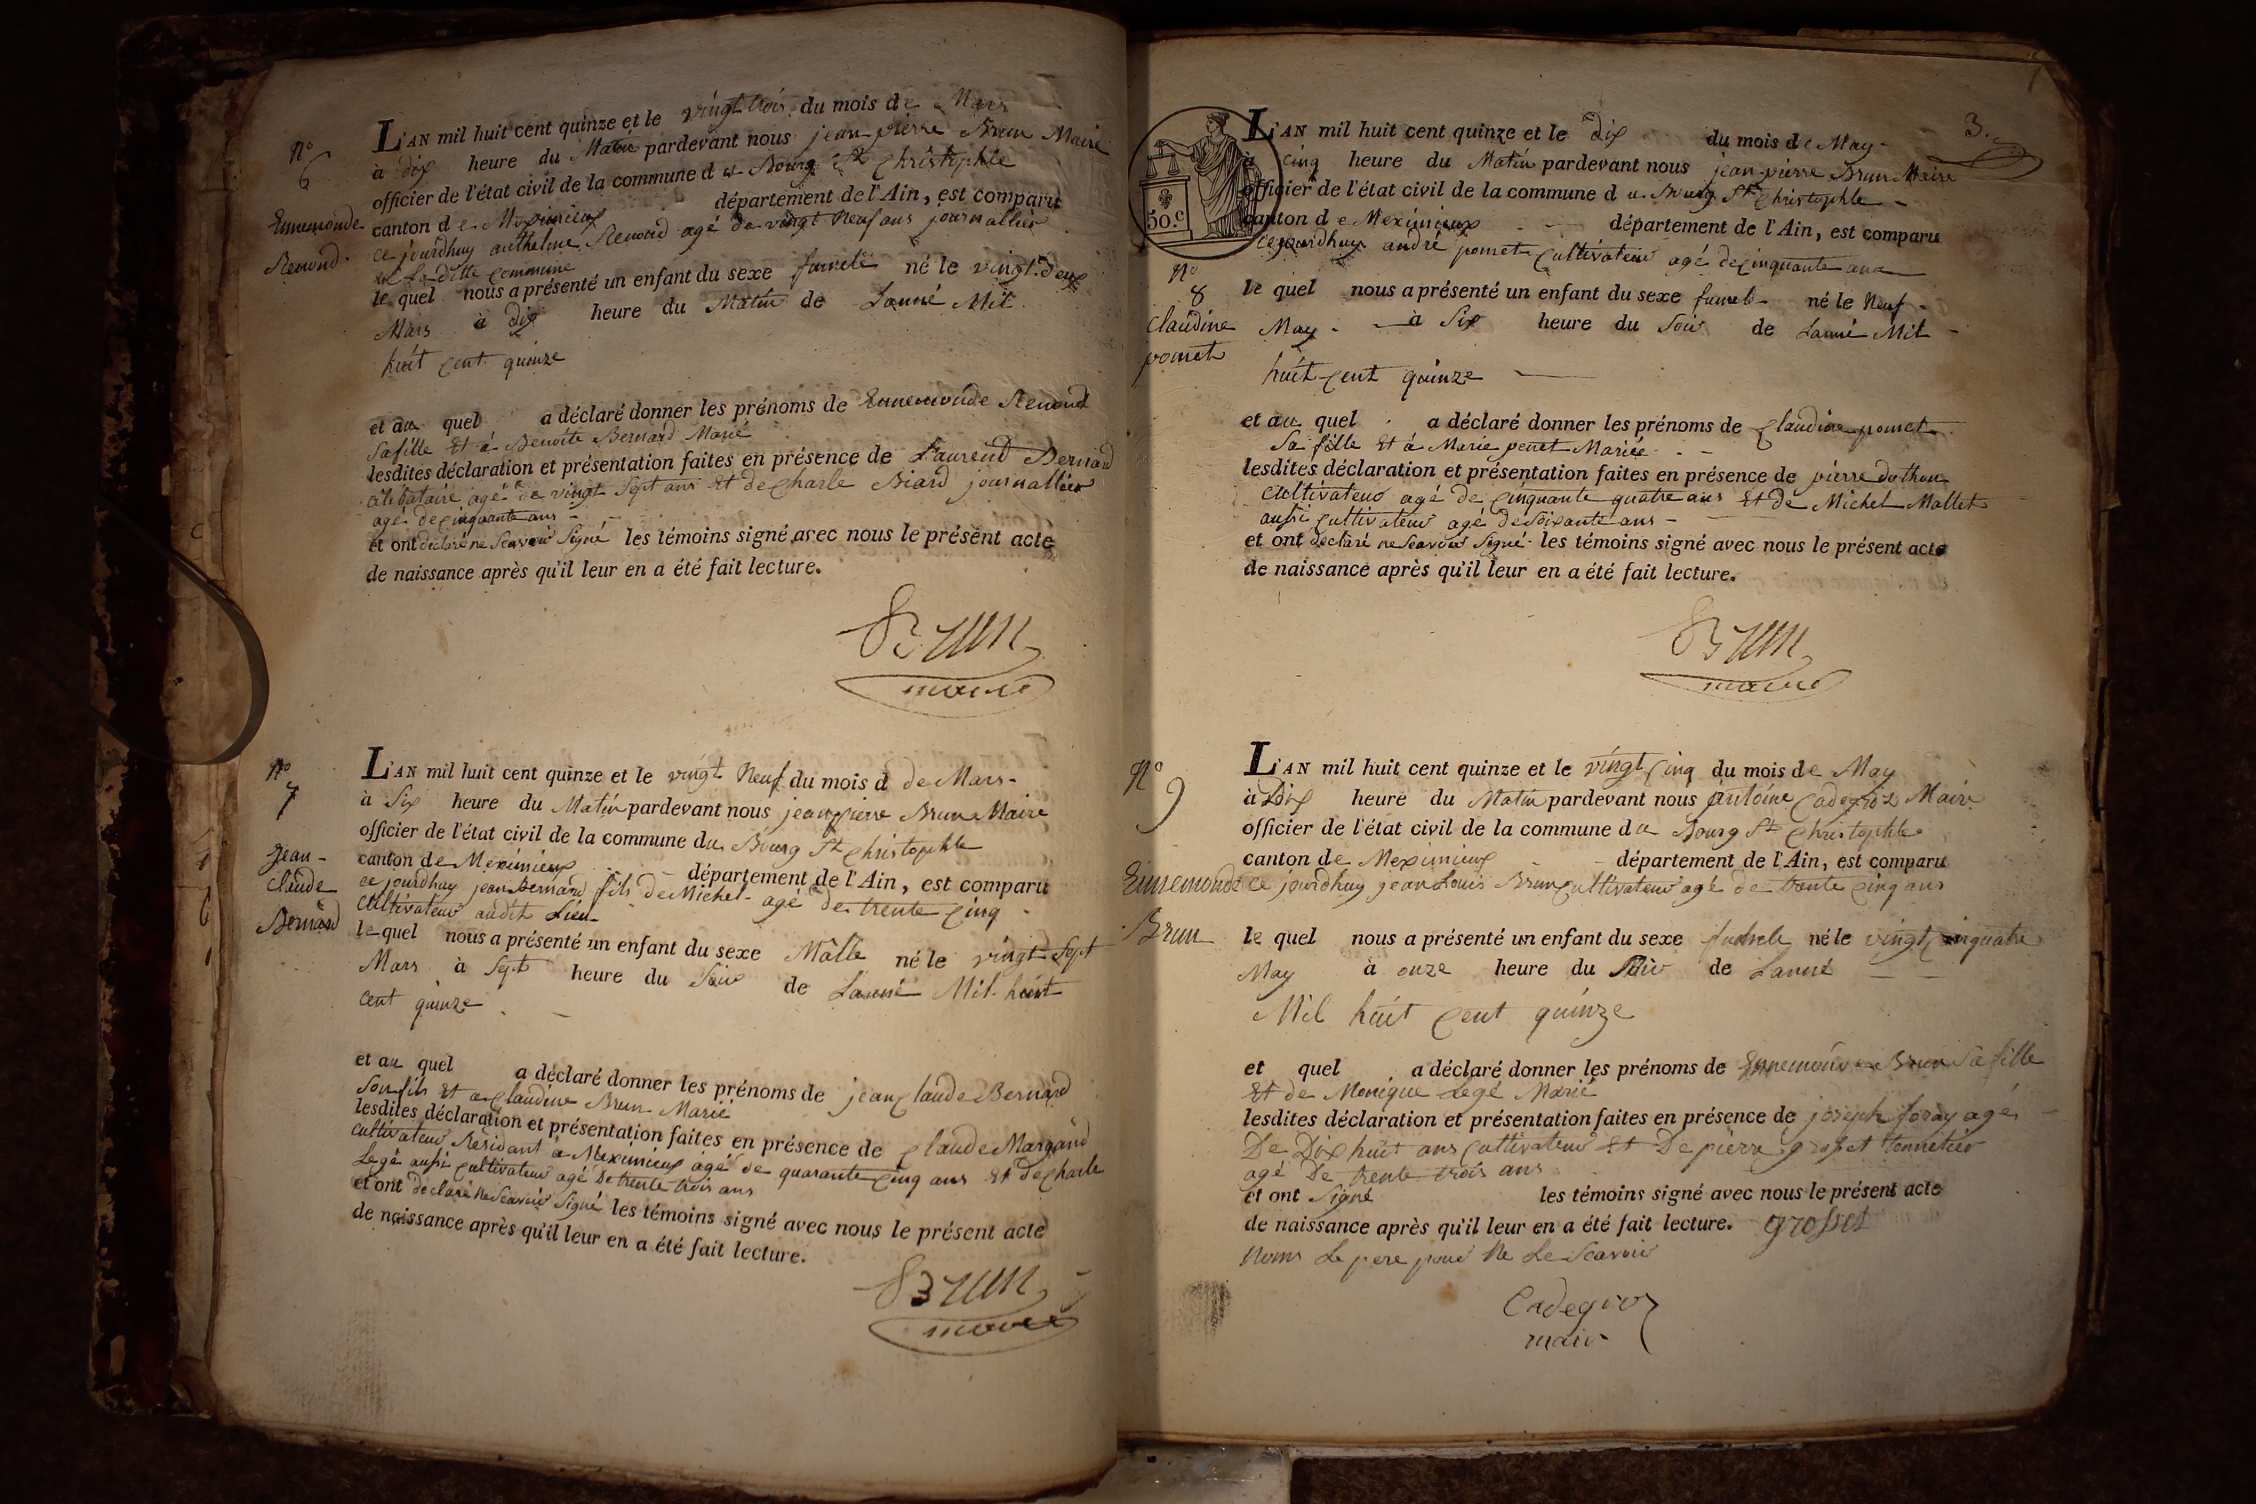 N.o
6
Ennemonde
Renoud.
L'AN mil huit cent quinze et le vingt trois du mois de Mars
à dix heure du Matin pardevant nous jean pierre Brun Maire
officier de l'état civil de la commune du Bourg St Christophle
canton de Meximieux département de l'Ain, est comparu
ce jourdhuy anthelme Renoud agé de vingt Neuf ans journallier
de La ditte Commune
le quel nous a présenté un enfant du sexe fumelle né le vingt deux
Mars à dix heure du Matin de Lanné Mil
huit cent quinze
et au quel a déclaré donner les prénoms de Ennemonde Renoud
Sa fille Et à Benoite Bernard Marié
lesdites déclaration et présentation faites en présence de Laurend Bernard
celibataire agé de vingt Sept ans Et de Charle Biard journallier
agé de cinquante ans
et ont declaré ne Scavoir Signé les témoins signé avec nous le présent acte
de naissance après qu'il leur en a été fait lecture.
Brun
maire
N.o
7
jean
claude
Bernard
L'AN mil huit cent quinze et le vingt Neuf du mois d de Mars
à Six heure du Matin pardevant nous jean pierre Brun Maire
officier de l'état civil de la commune du Bourg St Christophle
canton de Meximieux département de l'Ain, est comparu
ce jourdhuy jean Bernard fils de Michel agé de trente cinq
Cultivateur audit Lieu
le quel nous a présenté un enfant du sexe Mâlle né le vingt Sept
Mars à Sept heure du Soir de Lanné Mil huit
cent quinze
et au quel a déclaré donner les prénoms de jean claude Bernard
Son fils Et a claudine Brun Marié
lesdites déclaration et présentation faites en présence de claude Margand
cultivateur Residant à Meximieux agé de quarante cinq ans Et de Charle
Legé aussi Cultivateur agé De trente trois ans
et ont declaré Ne Scavoir Signé les témoins signé avec nous le présent acte
de naissance après qu'il leur en a été fait lecture.
Brun
maire
3.
50.c
L'AN mil huit cent quinze et le dix du mois de May
à cinq heure du Matin pardevant nous jean pierre Brun Maire
officier de l'état civil de la commune du Bourg St Christophle
canton de Meximieux département de l'Ain, est comparu
cejourdhuy andré pomet Cultivateur agé de cinquante ans
N.o
8
claudine
pomet
le quel nous a présenté un enfant du sexe fumel né le Neuf
May à Six heure du Soir de Lanné Mil
huit cent quinze
et au quel a déclaré donner les prénoms de Claudine pomet
Sa fille Et à Marie penet Mariée
lesdites déclaration et présentation faites en présence de pierre dothon
Cultivateur agé de Cinquante quatre ans Et de Michel Mallet
aussi Cultivateur agé de Soixante ans
et ont declaré ne Scavoir Signé les témoins signé avec nous le présent acte
de naissance après qu'il leur en a été fait lecture.
Brun
maire
N.o
9
Ennemonde
Brun
L'AN mil huit cent quinze et le vingt Cinq du mois de May
à Dix heure du Matin pardevant nous antoine Maire
officier de l'état civil de la commune du Bourg St Christophle
canton de Meximieux département de l'Ain, est comparu
ce jourdhuy jean Louis Brun Cultivateur agé de trente Cinq ans
le quel nous a présenté un enfant du sexe né le vingt
May à onze heure du Soir de Lanné
Mil huit Cent quinze
et quel a déclaré donner les prénoms de Ennemonde Brun Sa fille
Et de Monique Legé Marié
lesdites déclaration et présentation faites en présence de joseph foray agé
De Dix huit ans Cultivateur Et De pierre grosset tonnelier
agé De trente trois ans
et ont Signé les témoins signé avec nous le présent acte
de naissance après qu'il leur en a été fait lecture. grosset
Le pere pour Ne Le Scavoir
Cadegro
maire